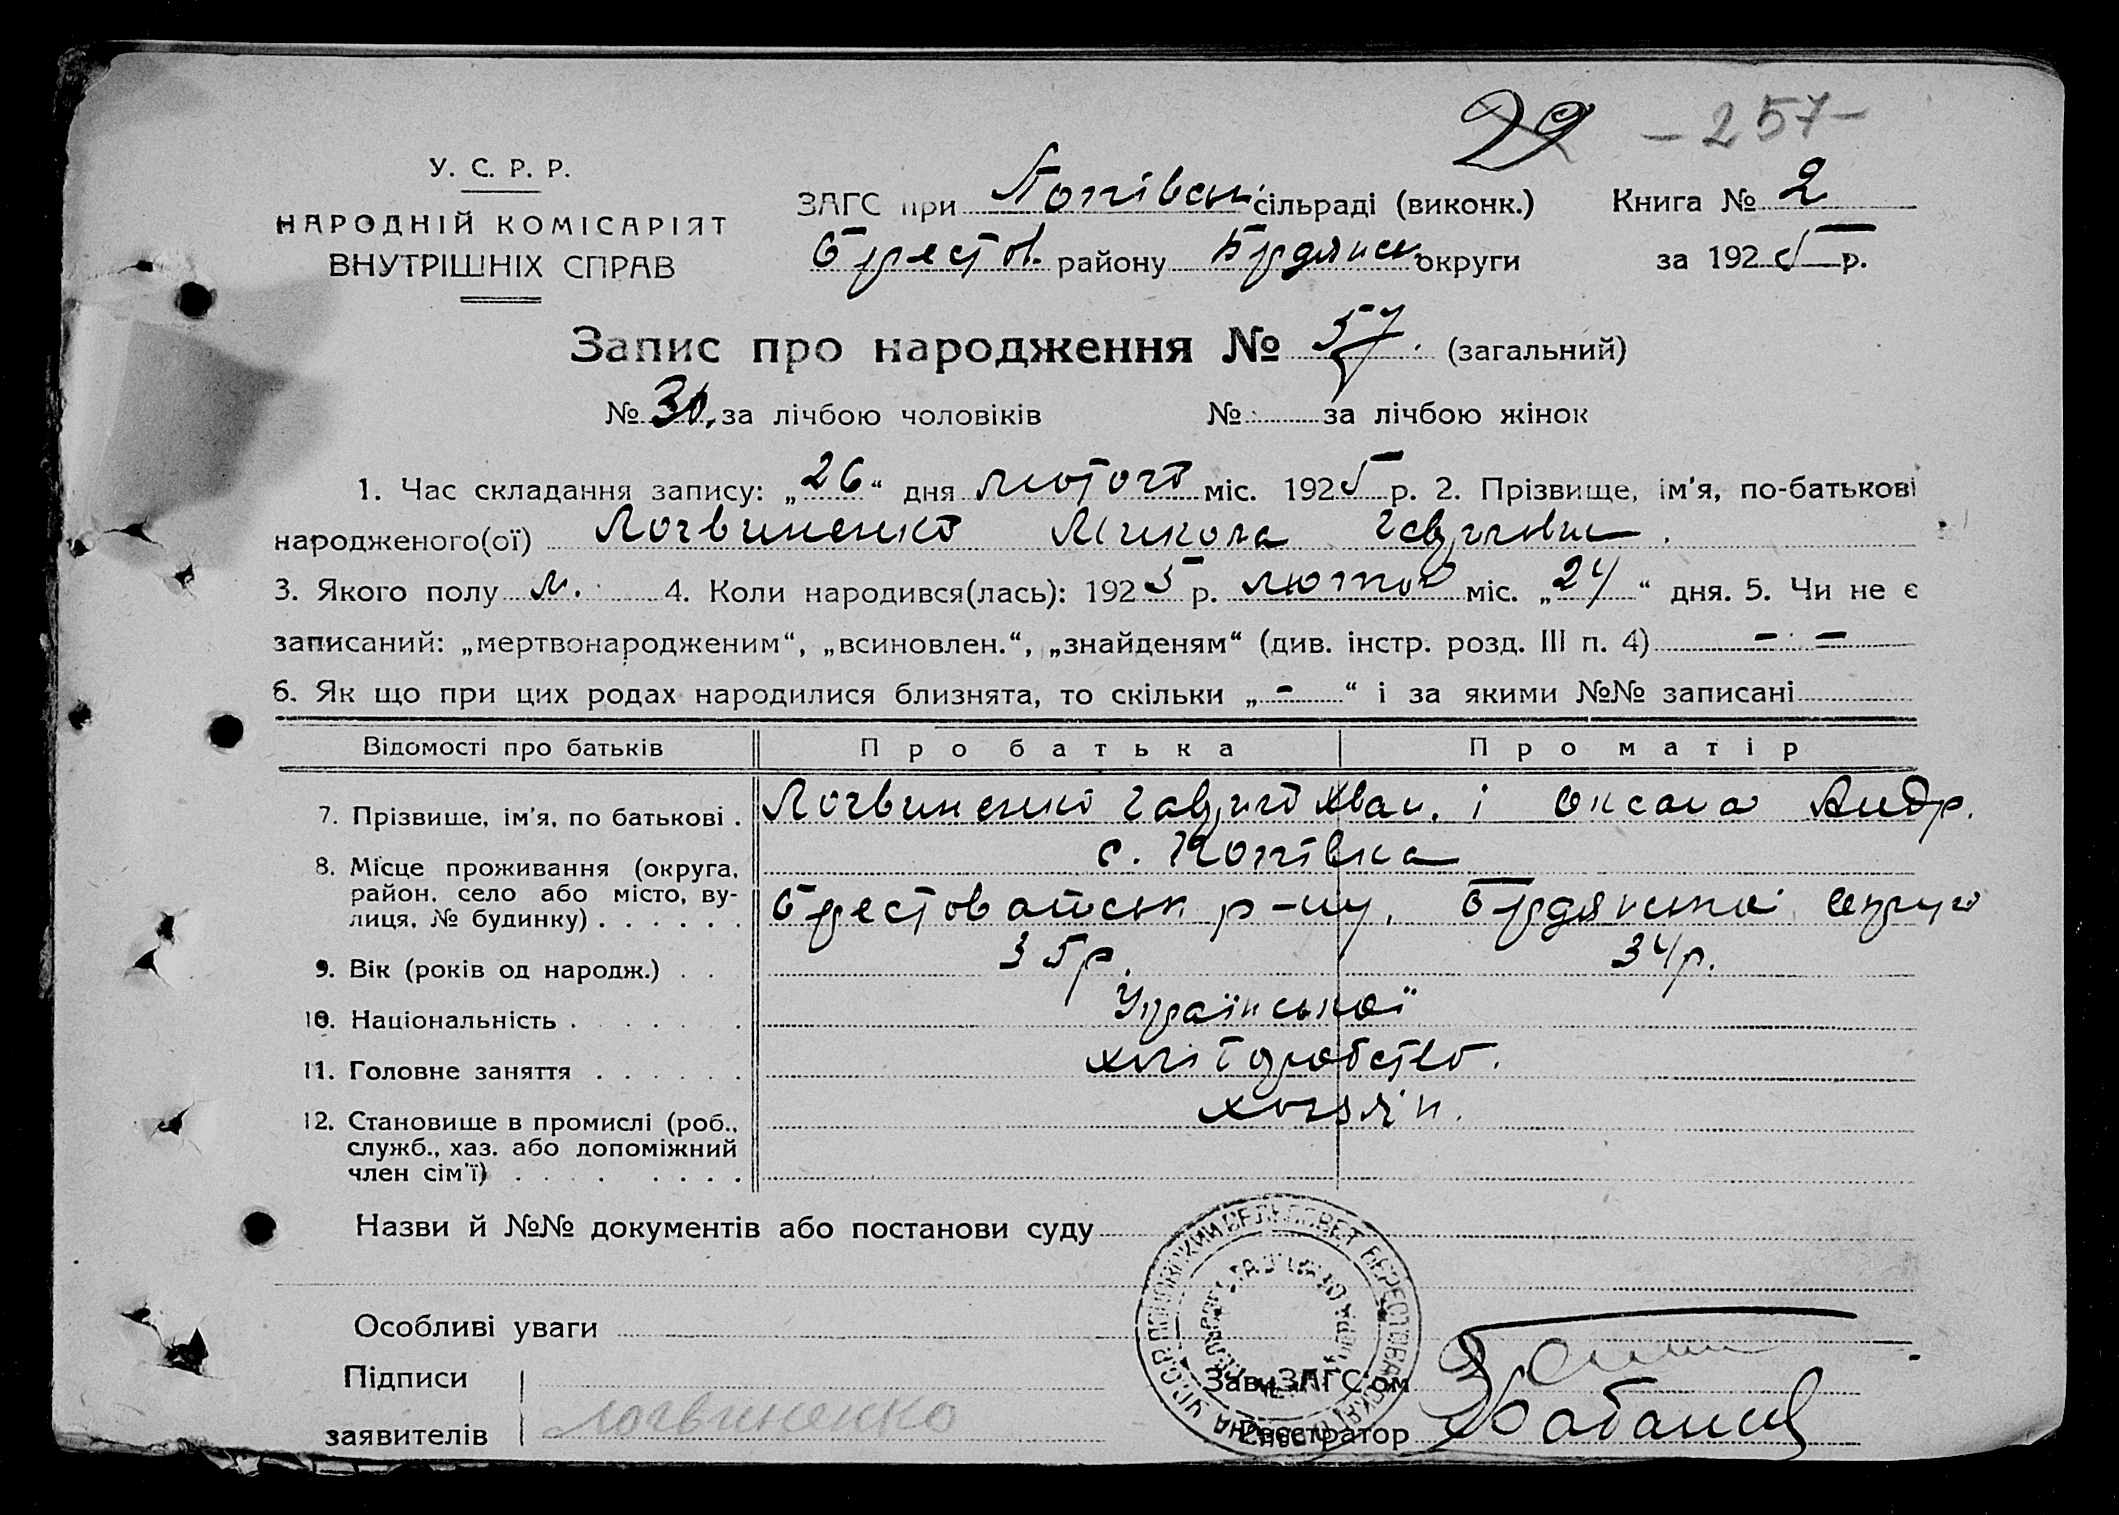 29 - 257 -
У. С. Р. Р.
НАРОДНІЙ КОМІСАРІЯТ
ВНУТРІШНІХ СПРАВ
ЗАГС при Попівськ. сільраді (виконк.) Книга № 2
Берестов. району Бердянськ. округи за 1925 р.
Запис про народження № 57. (загальний)
№ за лічбою чоловіків № за лічбою жінок
1. Час складання запису: „26“ дня лютого міс. 1925 р. 2. Прізвище, ім'я, по-батькові
народженого(ої) Логвиненко Микола Гаврилович.
3. Якого полу м. 4. Коли народився(лась): 1925 р. лютого міс. „24“ дня. 5. Чи не є
записаний: „мертвонародженим“, „всиновлен.“, „знайденям“ (див. інстр. розд. III п. 4) - -
6. Як що при цих родах народилися близнята, то скільки „-“ і за якими №№ записані
Відомості про батьків Про батька Про матір
7. Прізвище, ім'я, по батькові . Логвиненко Гаврило Іван. і Оксана Андр.
8. Місце проживання (округа, район, село або місто, вулиця, № будинку) . . . . . . с. Попівка
Берестоватськ р-ну, Бердянської округи
9. Вік (років од народж.) . . 35 р. 34 р.
10. Національність . . . . . . Української
11. Головне заняття . . . . . . хліборобство.
12. Становище в промислі (роб., служб., хаз. або допоміжний член сім'ї) . . . . . . . . хазяїн.
Назви й №№ документів або постанови суду
Особливі уваги
Підписи
заявителів Логвиненко
Зав. ЗАГС'ом
Реєстратор